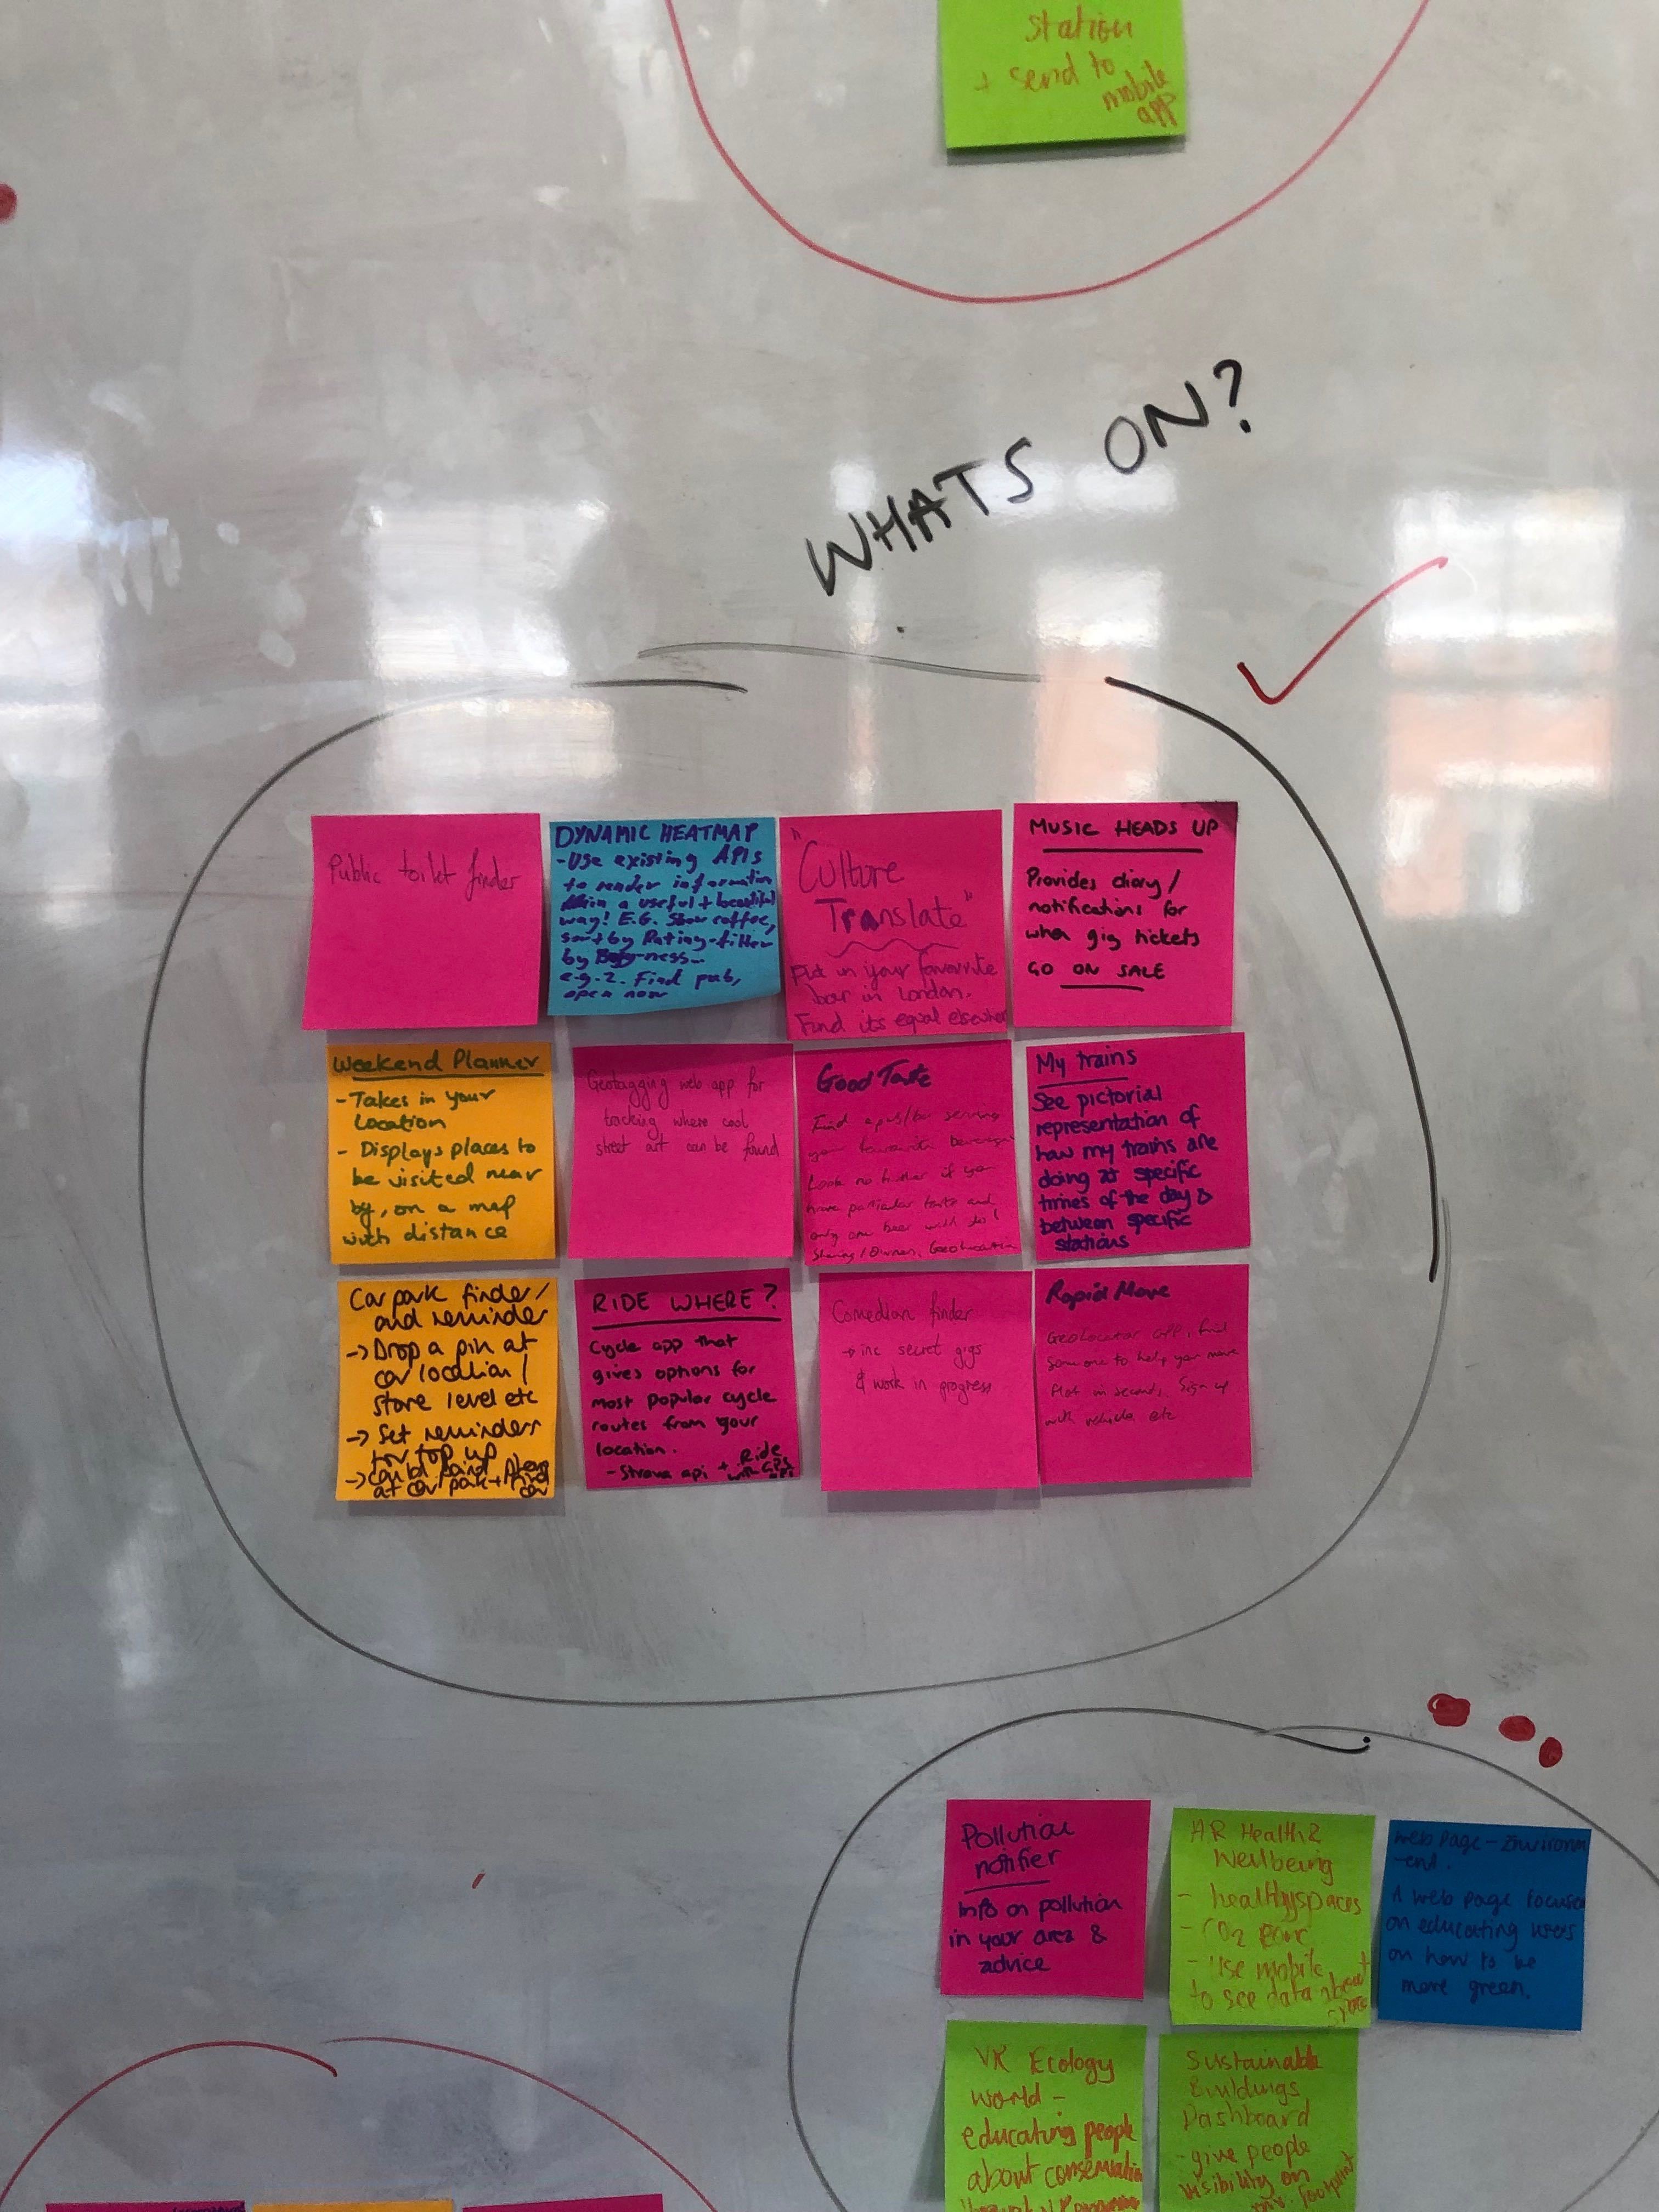 Station
+ send to
mobile
app
WHATS ON?
Public toilet finder
DYNAMIC HEATMAP
- Use existing APIs
to render information
in a useful + beautiful
way! E.G. Show coffee,
sort by Rating - filter
by Busy-ness...
e.g. 2. Find pub,
open now
"Culture
Translate"
Put in your favourite
bar in London.
Find its equal elsewher
MUSIC HEADS UP
Provides diary/
notifications for
when gig tickets
GO ON SALE
Weekend Planner
- Takes in your
location
- Displays places to
be visited near
by, on a map
with distance
Geotagging web app for
tracking where cool
street art can be found
Good Taste
Find a pub/bar serving
your favourite beverage
Look no further if you
have particular taste and
only one beer will do!
Sharing/ Geolocation
My trains
See pictorial
representation of
how my trains are
doing at specific
times of the day &
between specific
stations
Car park finder/
and reminder
-> Drop a pin at
car location/
store level etc
-> Set reminders
for top up
->
at car park + find
car
RIDE WHERE?
Cycle app that
gives options for
most popular cycle
routes from your
location.
- Strava api + Ride
with GPS
api
Comedian finder
-> inc secret gigs
& work in progress
Rapid Move
GeoLocator app, find
someone to help you move
flat in seconds, Sign up
with vehicle etc
Pollution
notifier
Info on pollution
in your area &
advice
AR Health &
Wellbeing
- healthyspaces
- CO2
- Use mobile
to see data about
space
Web Page - Environm
-ent.
A web page focused
on educating users
on how to be
more green.
VR Ecology
World -
educating people
about conservation
through VR
Sustainable
Buildings
Dashboard
- give people
visibility on
footprint